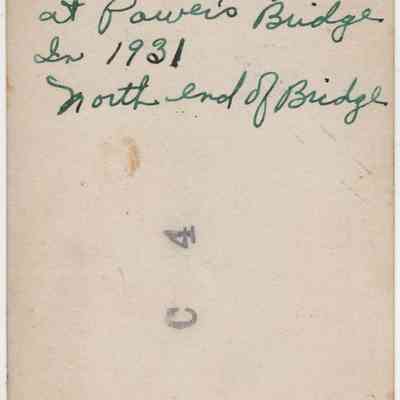 at Power's Bridge
In 1931
North end of Bridge
C 4